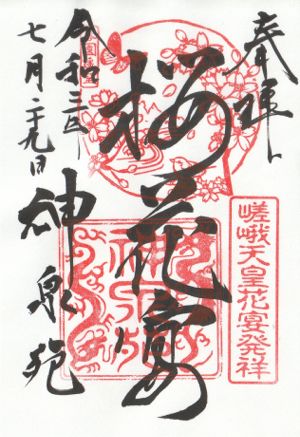 奉拝
嵯峨天皇花宴発祥
桜花宴
令和三年
七月二十九日
神泉苑